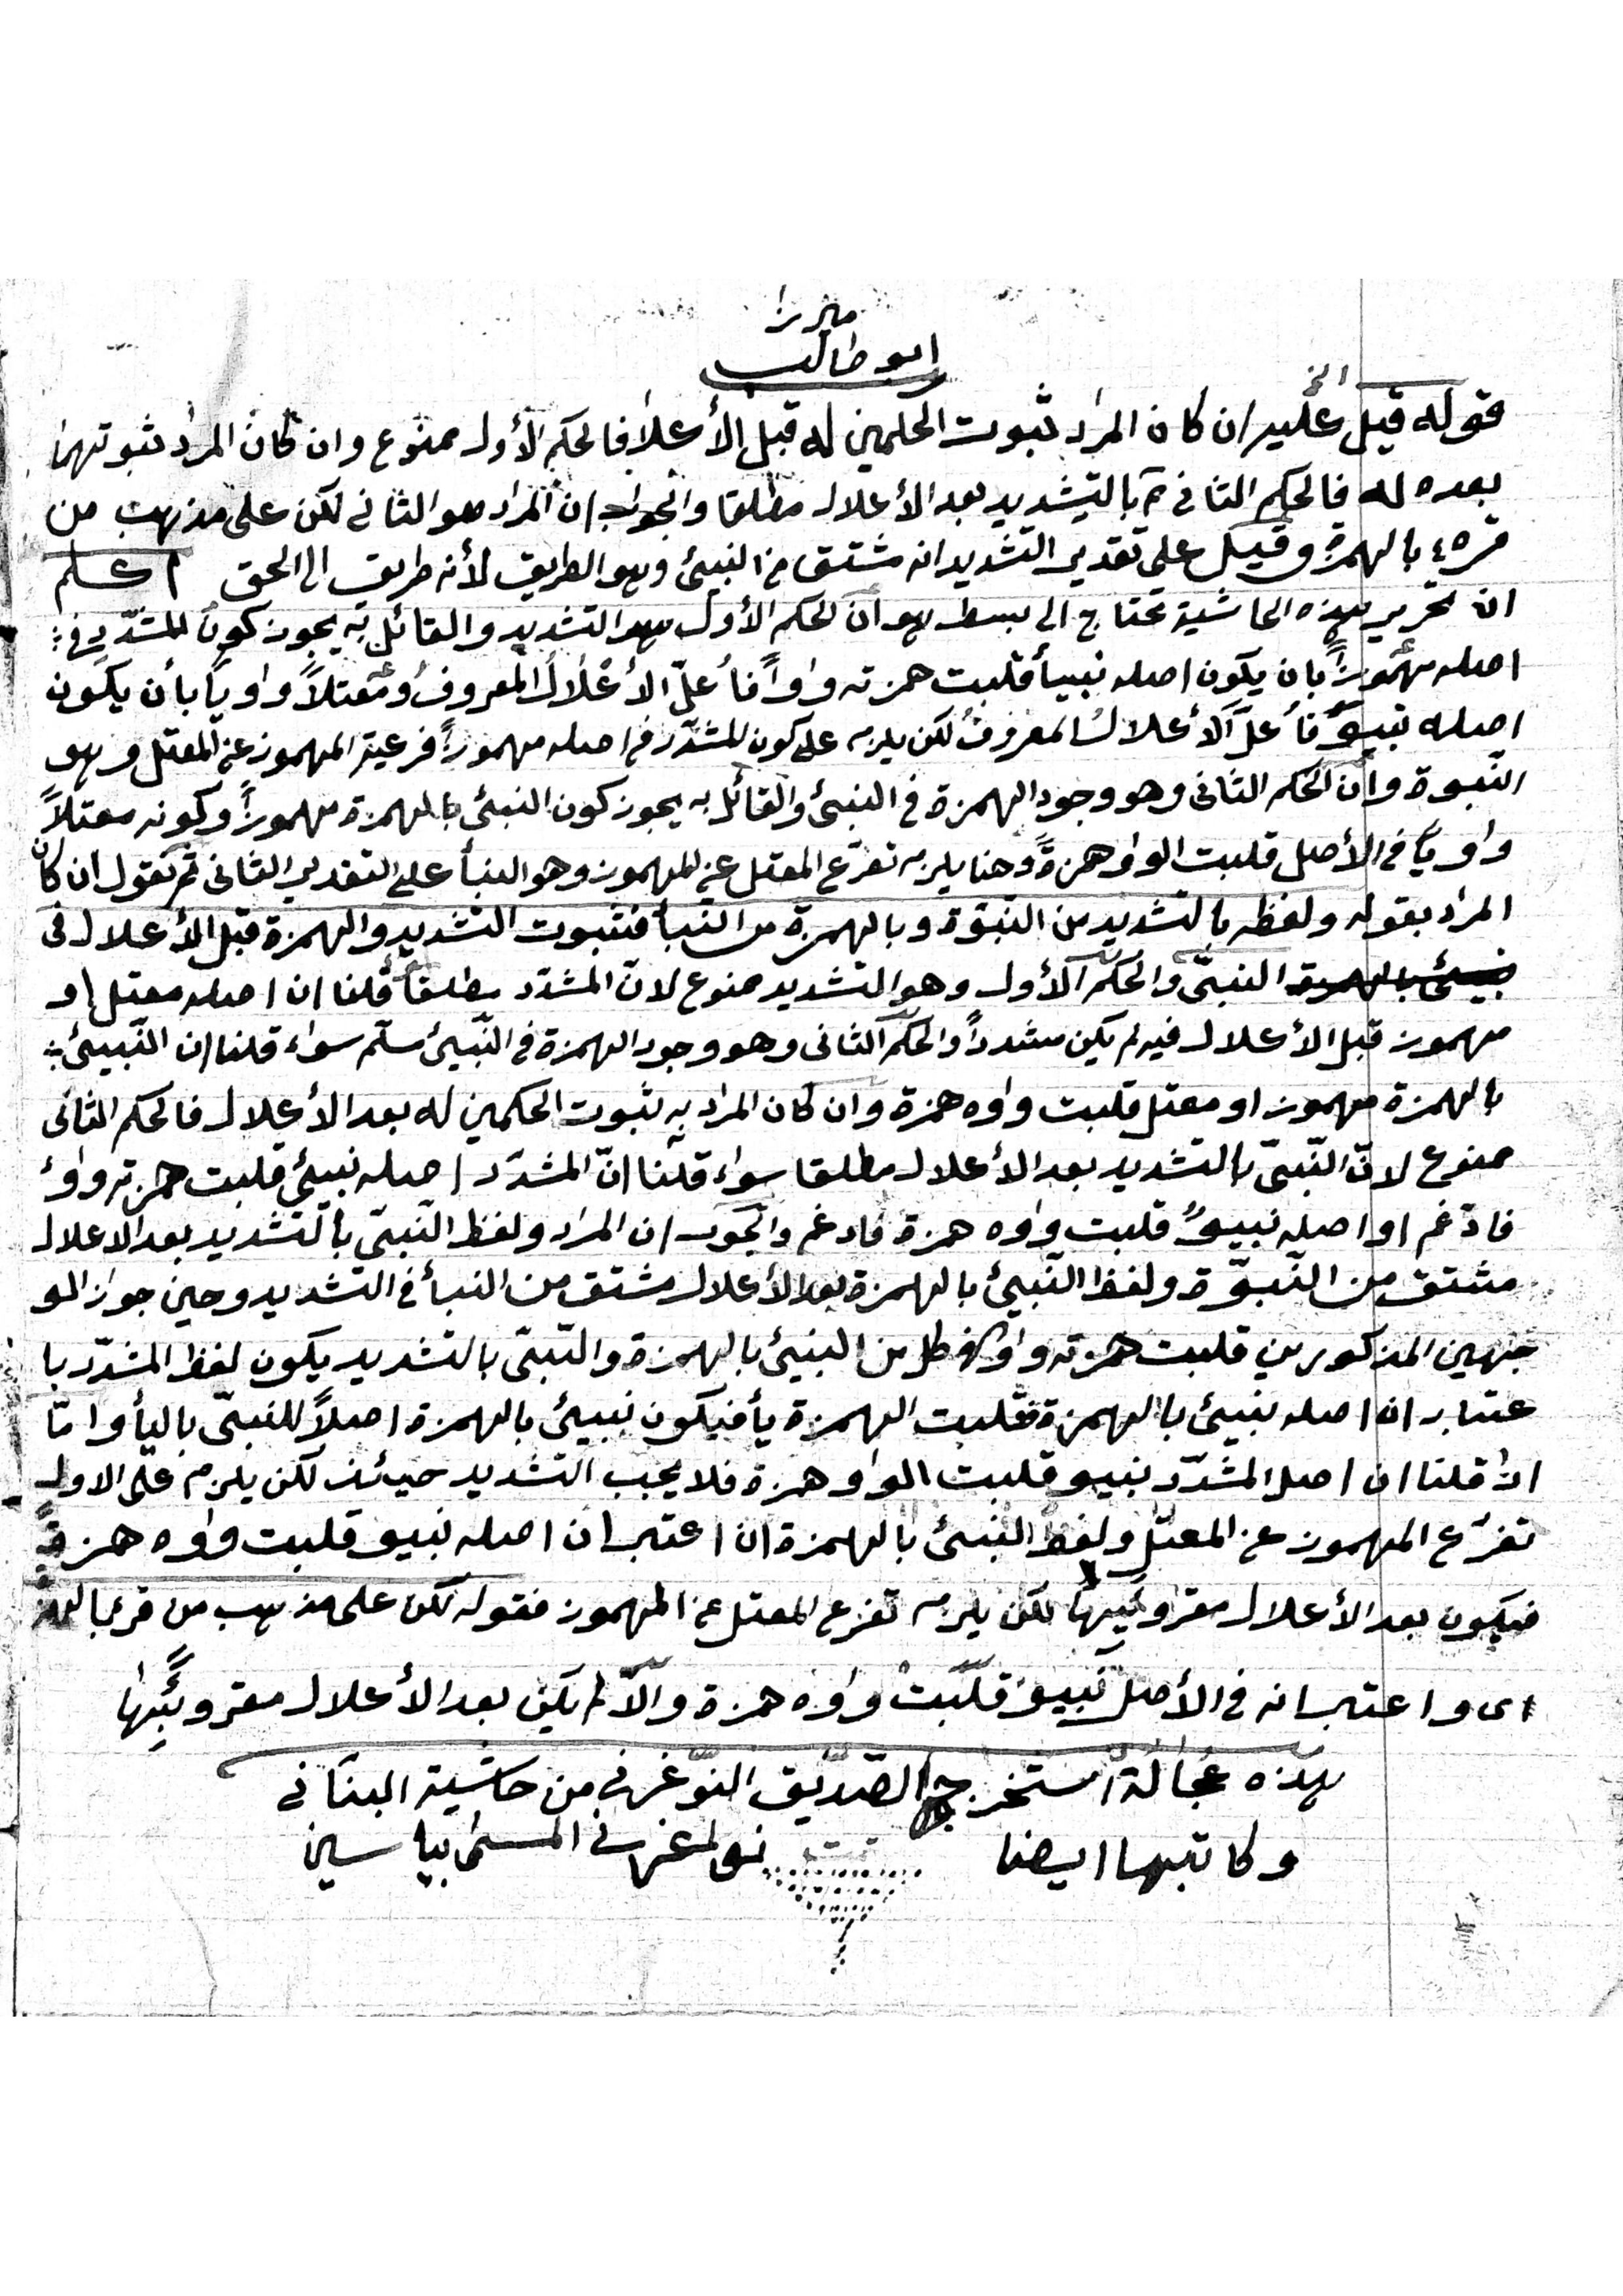 ميرزا
ابو طالب
الخ
قوله قيل عليه ان كان المراد ثبوت الحكمين له قبل الأعلال فالحكم الأول ممنوع وان كان المراد ثبوتهما
بعده له فالحكم الثانى بالتشديد بعد الأعلال مطلقا والجواب ان المراد هو الثانى لكن على مذهب من
قرءه بالهمزة وقيل على تقدير التشديد انه مشتق من النبيئ وهو الطريق لأنه طريق الى الحق اعلم
ان تحرير هذه الحاشية تحتاج الى بسط هو ان الحكم الأول هو التشديد والقائل به يجوز كون المشدّد فى
اصله مهموزاً بان يكون اصله نبيئاً قلبت همزته واواً فأعلّ الأعلال المعروف او معتلاً واوياً بأن يكون
اصله نبيوٌ فأعلّ الأعلال المعروف لكن يلزمه على كون المشدّد فى اصله مهموزاً فرعية المهموز عن المعتل وهو
النّبوة وان الحكم الثانى وهو وجود الهمزة فى النبئ والقائل به يجوز كون النبئ بالهمزة مهموزاً وكونه معتلاً
واوياً فى الأصل قلبت الواو همزةً وهنا يلزمه تفرّع المعتل عن المهموز وهو النبأ على التقدير الثانى ثم نقول ان كان
المراد بقوله ولفظه بالتشديد من النبوّة وبالهمزة من النبأ فثبوت التشديد والهمزة قبل الأعلال فى
النبىّ والحكم الأول وهو التشديد ممنوع لانّ المشدّد مطلقاً قلنا ان اصله معتل او
مهموز قبل الأعلال فيه لم يكن مشدداً والحكم الثانى وهو وجود الهمزة فى النّبيئ سلّم سواء قلنا ان النّبيئ
بالهمزة مهموز او معتل قلبت واوه همزة وان كان المراد به ثبوت الحكمين له بعد الأعلال فالحكم الثانى
ممنوع لانّ النّبىّ بالتشديد بعد الأعلال مطلقا سواء قلنا انّ المشدّد اصله نبيئ قلبت همزته واو
فادّغم او اصله نبيوٌ قلبت واوه همزة فادغم والجواب ان المراد ولفظ النّبىّ بالتشديد بعد الاعلال
مشتق من النّبوّة ولفظ النّبيئ بالهمزة بعد الأعلال مشتق من النبأ فى التشديد وحين جواز الو
جهين المذكورين قلبت همزته واو لفظ كل من النبيئ بالهمزة والنّبىّ بالتشديد يكون لفظ المشدّد با
عتبار ان اصله نبيئ بالهمزة فقلبت الهمزة يأ فيكون نبيئ بالهمزة اصلاً للنبىّ باليأ وامّا
اذا قلنا ان اصل المشدّد نبيو قلبت الواو همزة فلا يجب التشديد حينئذ لكن يلزم على الاول
تفرّع المهموز عن المعتل ولفظ النبئ بالهمزة ان اعتبر ان اصله نبيو قلبت واوه همزة
فيكون بعد الأعلال مقروئًيها لكن يلزمه تفرع المعتل عن المهموز فقوله لكن على مذهب من قرء بالهمزة
اى واعتبر انه فى الأصل نَبيوٌ قلبت واوه همزة والّا لم يكن بعد الأعلال مقروئَيها
هذه عُجالة استخرجها الصّدّيق النّوغرنى من حاشية البنانى
وكاتبها ايضا تمت نوغرنى المسمى بياسين